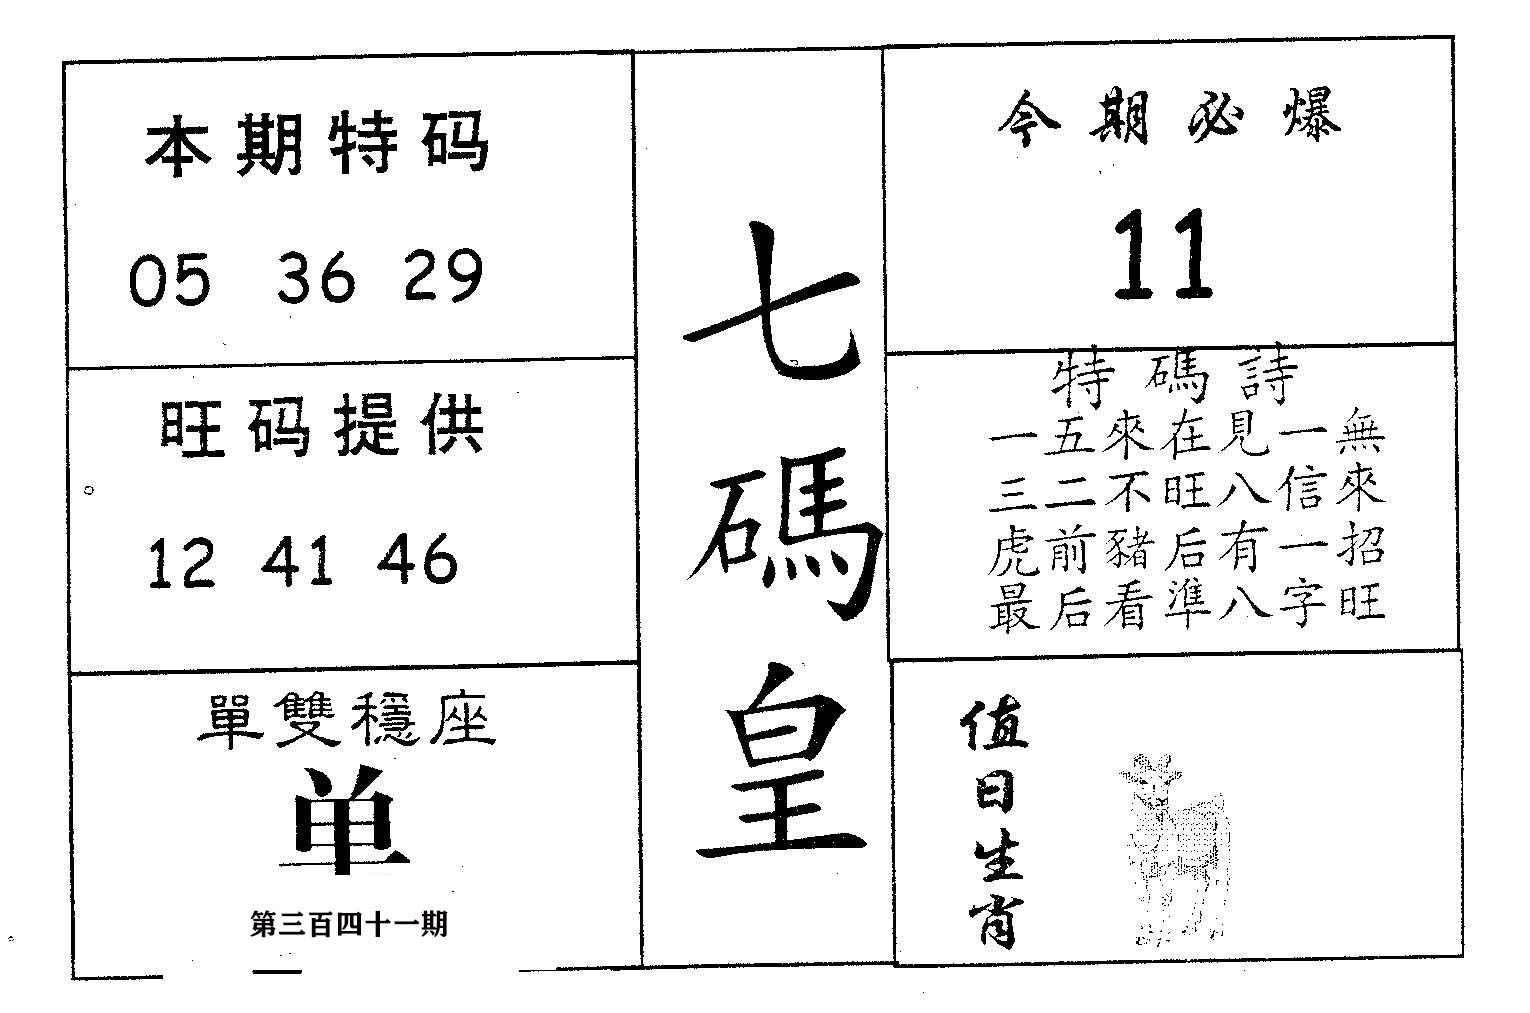 本期特码
05 36 29
旺码提供
12 41 46
單雙穩座
单
第三百四十一期
七碼皇
今期必爆
11
特碼詩
一五來在見一無
三二不旺八信來
虎前豬后有一招
最后看準八字旺
值日生肖